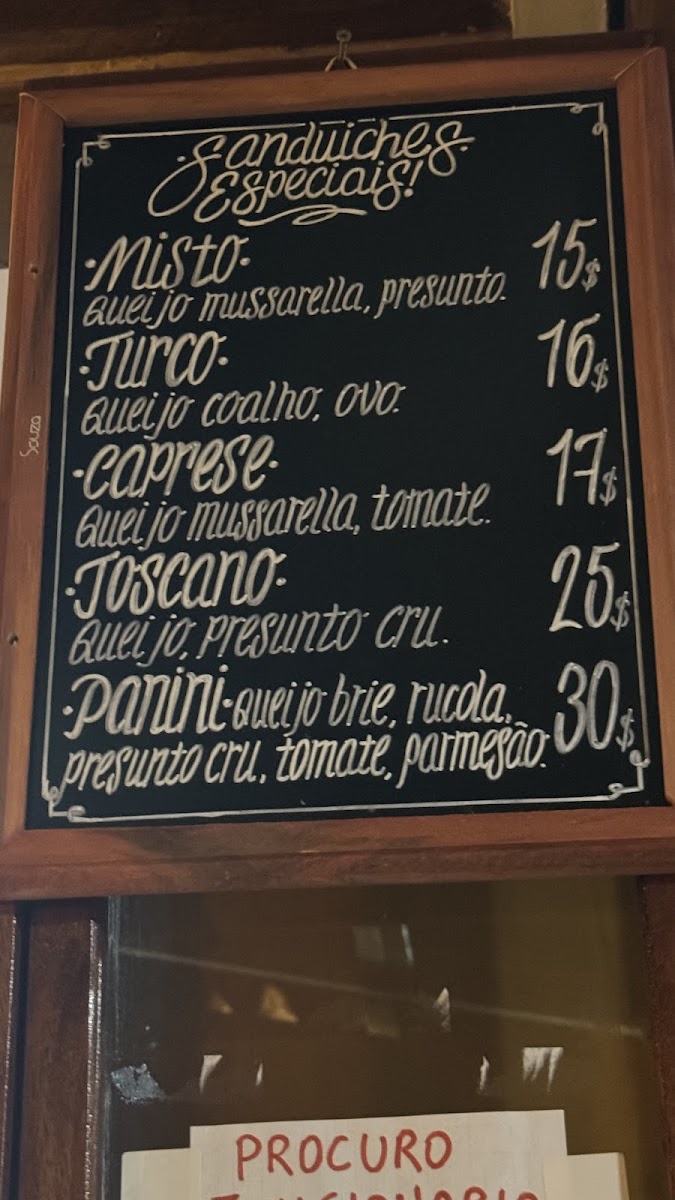 Sanduiches
Especiais!
·Misto· 15$
Queijo mussarella, presunto.
·Turco· 16$
Queijo coalho, ovo.
·Caprese· 17$
Queijo mussarella, tomate.
·Toscano· 25$
Queijo, presunto cru.
·Panini·Queijo brie, rucola, 30$
presunto cru, tomate, parmesão.
Souza
PROCURO
FUNCIONARIO